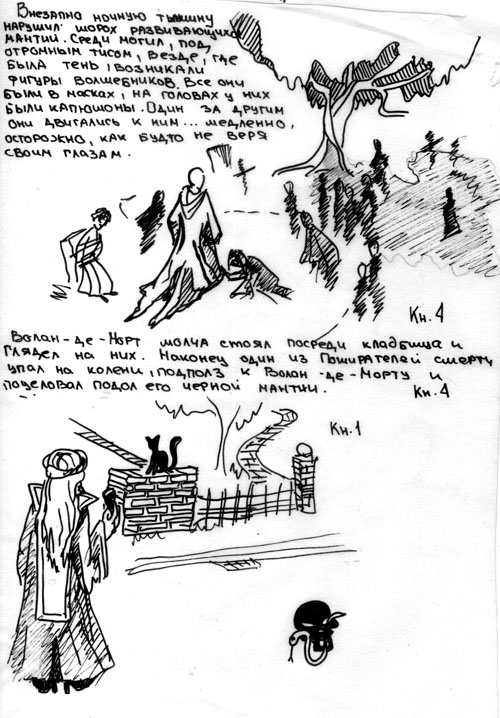 Внезапно ночную тишину
нарушил шорох развивающихся
мантий. Среди могил, под
огромным тисом, везде, где
была тень, возникали
фигуры волшебников. Все они
были в масках, на головах у них
были капюшоны. Один за другим
они двигались к ним... медленно,
осторожно, как будто не веря
своим глазам.
Кн. 4
Волан-де-Морт молча стоял посреди кладбища и
глядел на них. Наконец один из Пожирателей смерти
упал на колени, подполз к Волан-де-Морту и
поцеловал подол его черной мантии.
Кн. 4
Кн. 1